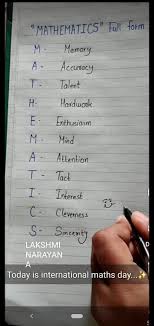 "MATHEMATICS" Full form
M - Memory
A - Accuracy
T - Talent
H - Hardwork
E - Enthusiasm
M - Mind
A - Attention
T - Tact
I - Interest
C - Cleverness
S - Sincerity
LAKSHMI
NARAYAN
A
Today is international maths day...✨